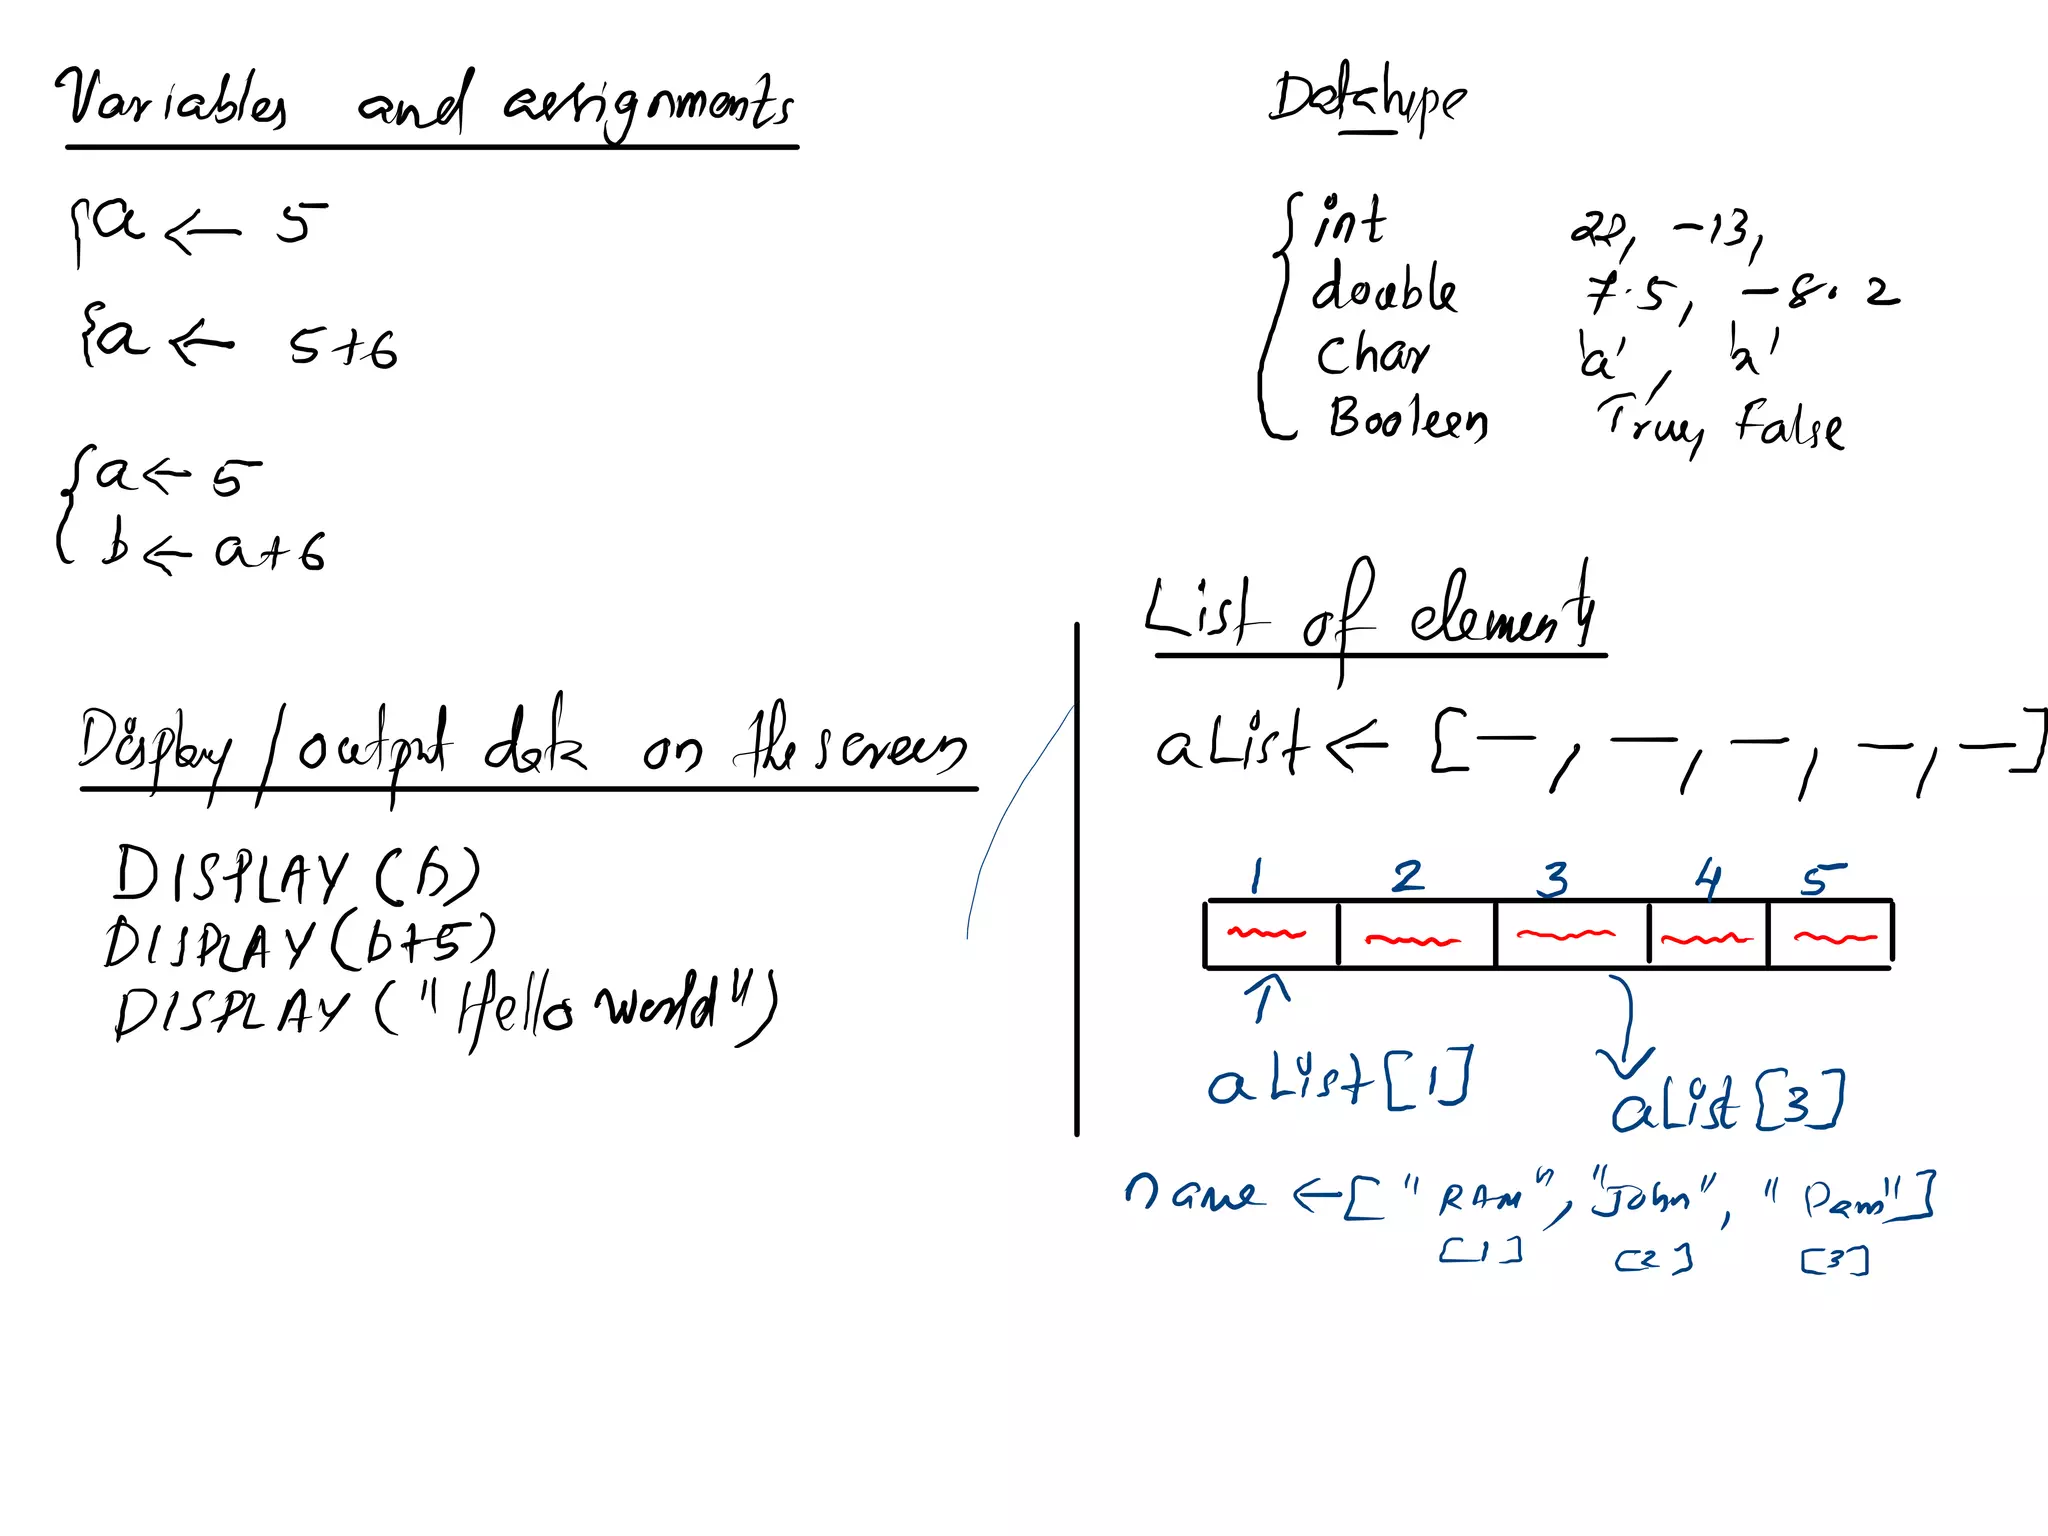 Variables and assignments
{a ← 5
{a ← 5+6
{a ← 5
b ← a+6
Datatype
int 28, -13,
double 7.5, -8.2
Char 'a',
Booleen True, False
Display / output data on the screen
DISPLAY (b)
DISPLAY (b+5)
DISPLAY ("Hello world")
List of elements
aList ← [—, —, —, —, —]
1 2 3 4 5
aList[1]
aList[3]
name ← ["RAM", "John", "Pam"]
[1] [2] [3]